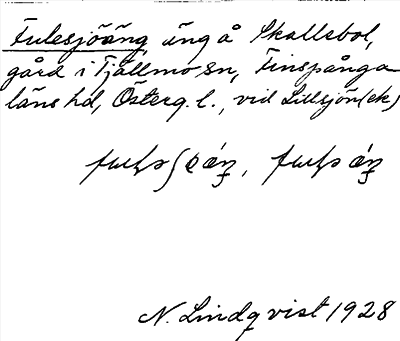 Fulesjöäng, äng å Skallebol,
gård i Tjällmo sn, Finspånga
läns hd, Österg. l., vid Lillsjön (ek)
N. Lindqvist 1928